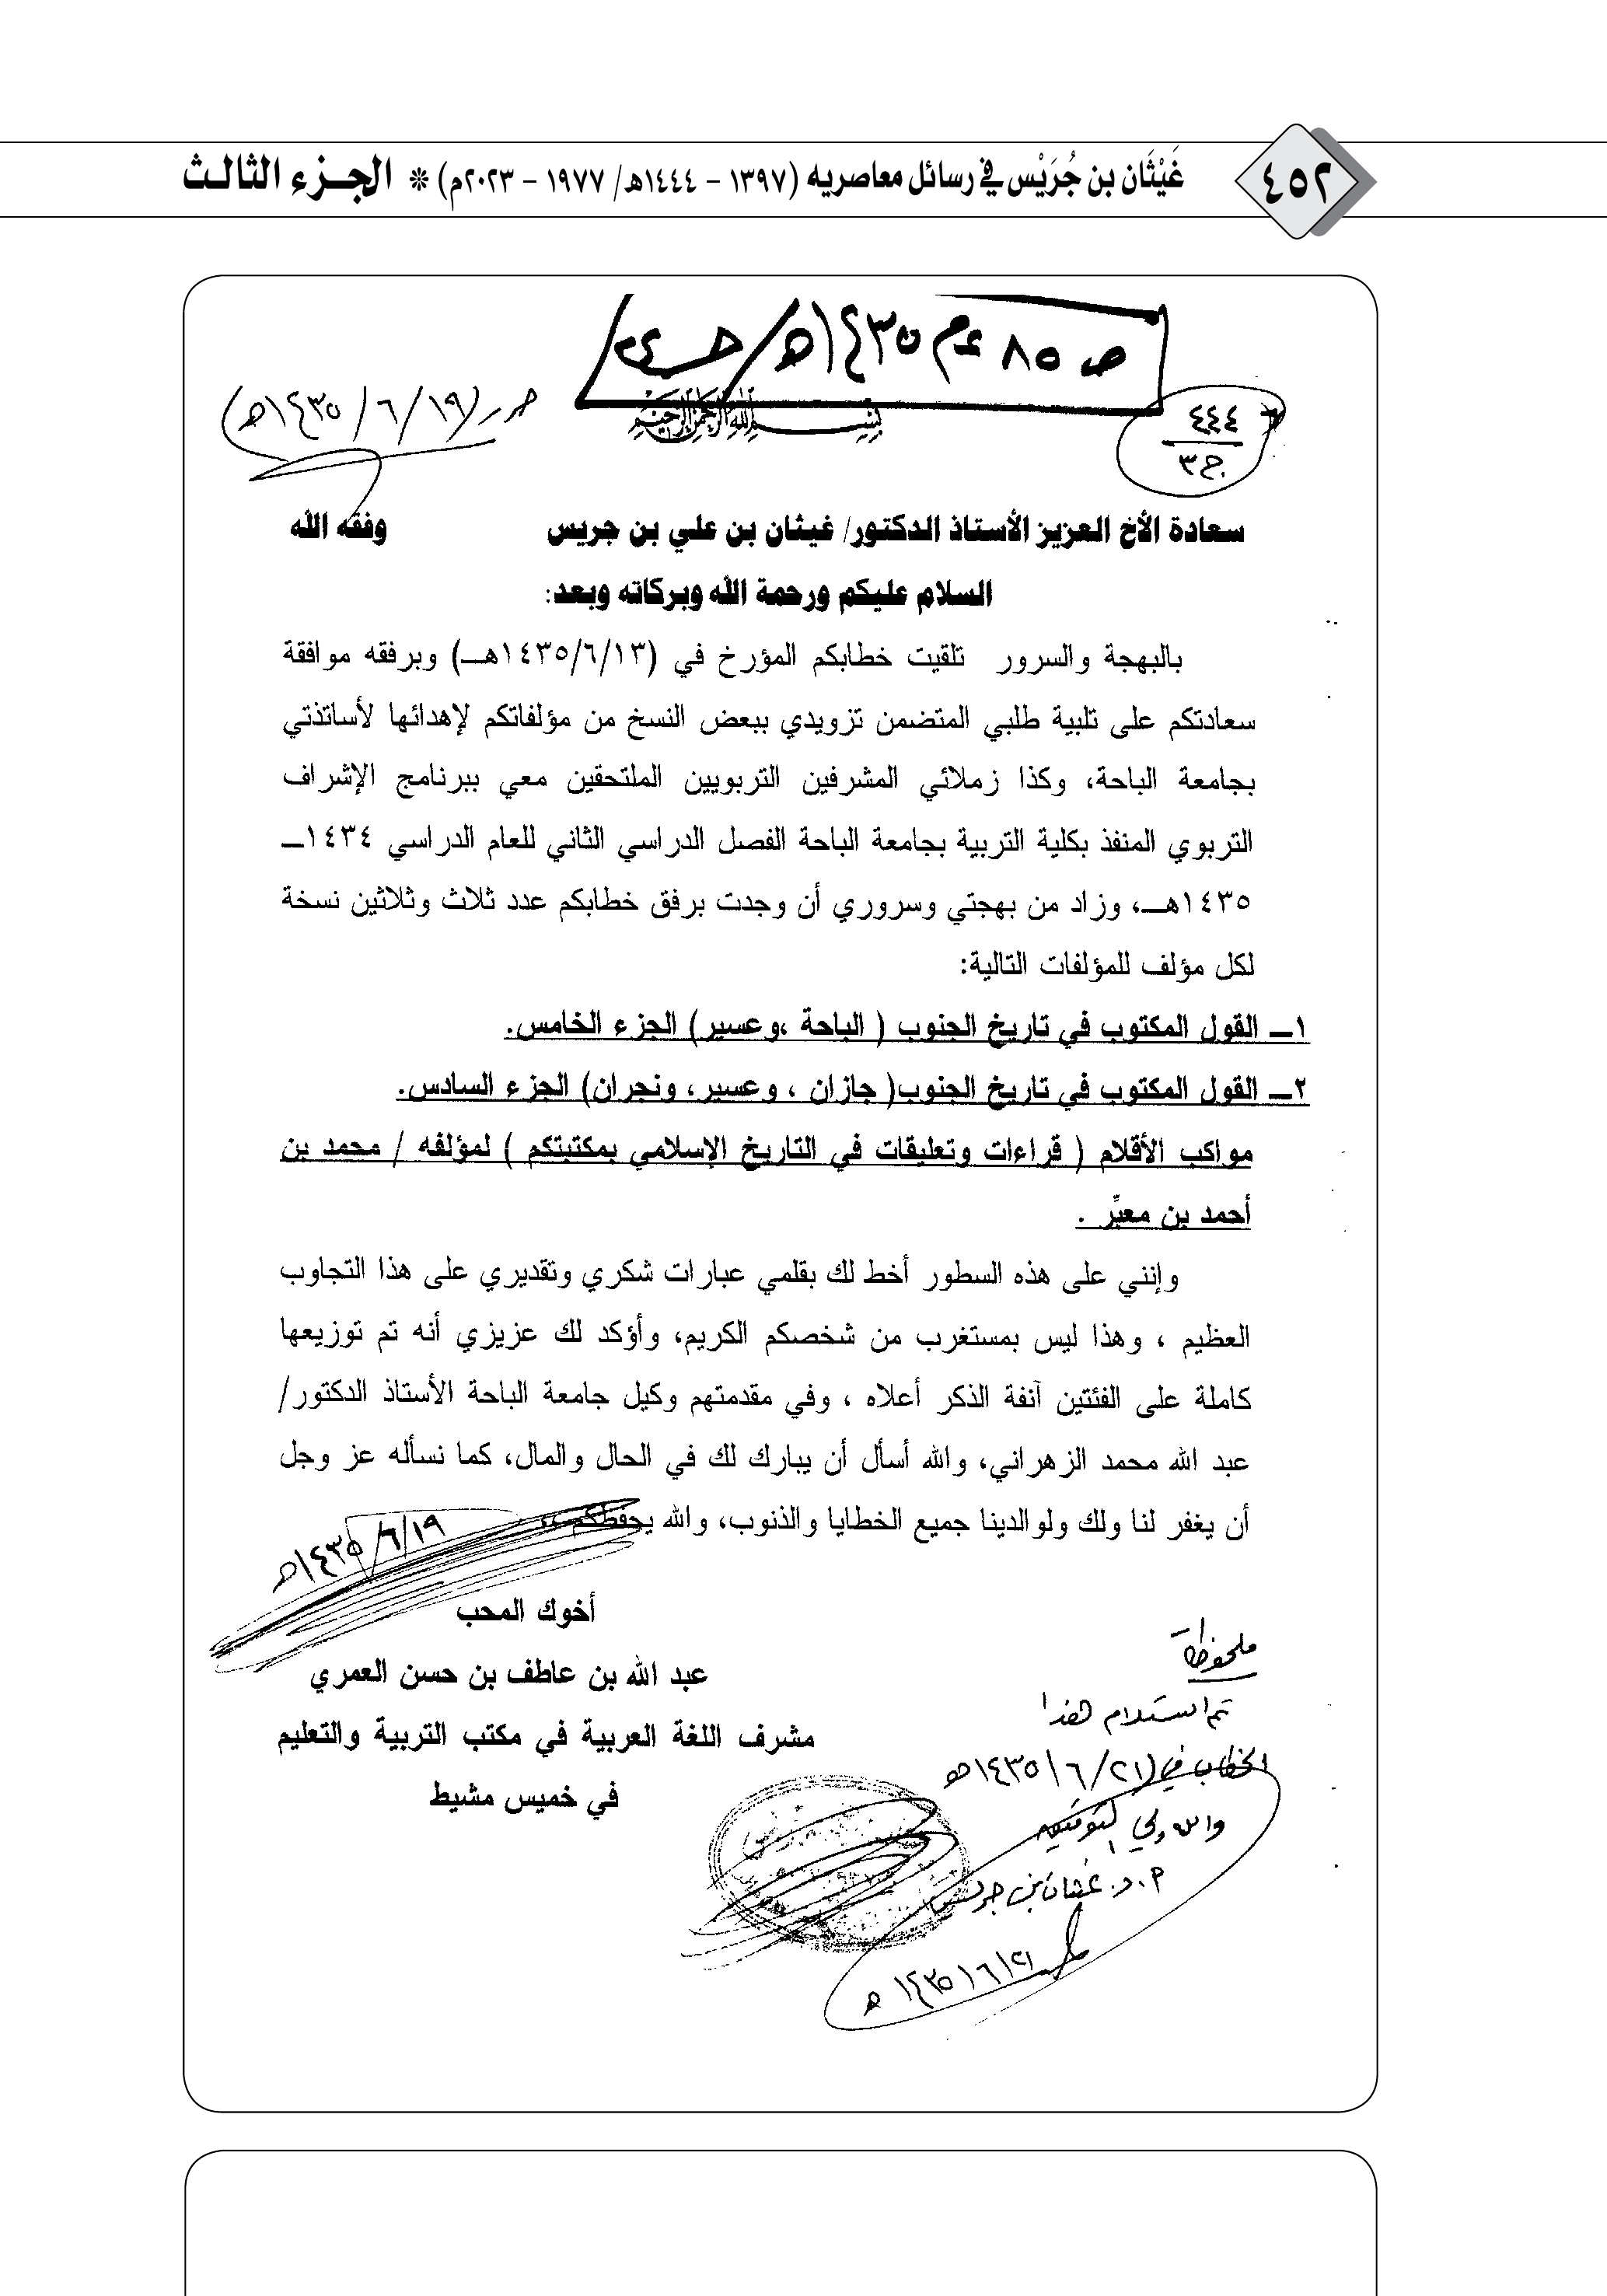 ٤٥٢
غَيْثَان بن جُرَيْس في رسائل معاصريه (١٣٩٧ – ١٤٤٤هـ/ ١٩٧٧ – ٢٠٢٣م) * الجـزء الثالـث
ص ٨٥ عم ١٤٣٥هـ/
٤٤٤
ج٣
بسم الله الرحمن الرحيم
١٤٣٥/٦/١٩هـ
سعادة الأخ العزيز الأستاذ الدكتور/ غيثان بن علي بن جريس وفقه الله
السلام عليكم ورحمة الله وبركاته وبعد:
بالبهجة والسرور تلقيت خطابكم المؤرخ في (١٤٣٥/٦/١٣هـــ) وبرفقه موافقة
سعادتكم على تلبية طلبي المتضمن تزويدي ببعض النسخ من مؤلفاتكم لإهدائها لأساتذتي
بجامعة الباحة، وكذا زملائي المشرفين التربويين الملتحقين معي ببرنامج الإشراف
التربوي المنفذ بكلية التربية بجامعة الباحة الفصل الدراسي الثاني للعام الدراسي ١٤٣٤ــ
١٤٣٥هــ، وزاد من بهجتي وسروري أن وجدت برفق خطابكم عدد ثلاث وثلاثين نسخة
لكل مؤلف للمؤلفات التالية:
١ــ القول المكتوب في تاريخ الجنوب ( الباحة ،وعسير) الجزء الخامس.
٢ــ القول المكتوب في تاريخ الجنوب( جازان ، وعسير، ونجران) الجزء السادس.
مواكب الأقلام ( قراءات وتعليقات في التاريخ الإسلامي بمكتبتكم ) لمؤلفه / محمد بن
أحمد بن معبِّر .
وإنني على هذه السطور أخط لك بقلمي عبارات شكري وتقديري على هذا التجاوب
العظيم ، وهذا ليس بمستغرب من شخصكم الكريم، وأؤكد لك عزيزي أنه تم توزيعها
كاملة على الفئتين آنفة الذكر أعلاه ، وفي مقدمتهم وكيل جامعة الباحة الأستاذ الدكتور/
عبد الله محمد الزهراني، والله أسأل أن يبارك لك في الحال والمال، كما نسأله عز وجل
أن يغفر لنا ولك ولوالدينا جميع الخطايا والذنوب، والله يحفظكم ،،
١٤٣٥/٦/١٩هـ
أخوك المحب
عبد الله بن عاطف بن حسن العمري
مشرف اللغة العربية في مكتب التربية والتعليم
في خميس مشيط
ملحوظة
تم استلام هذا
الخطاب في ١٤٣٥/٦/٢١هـ
والله ولي التوفيق
أ.د. غيثان بن جريس
١٤٣٥/٦/٢١هـ